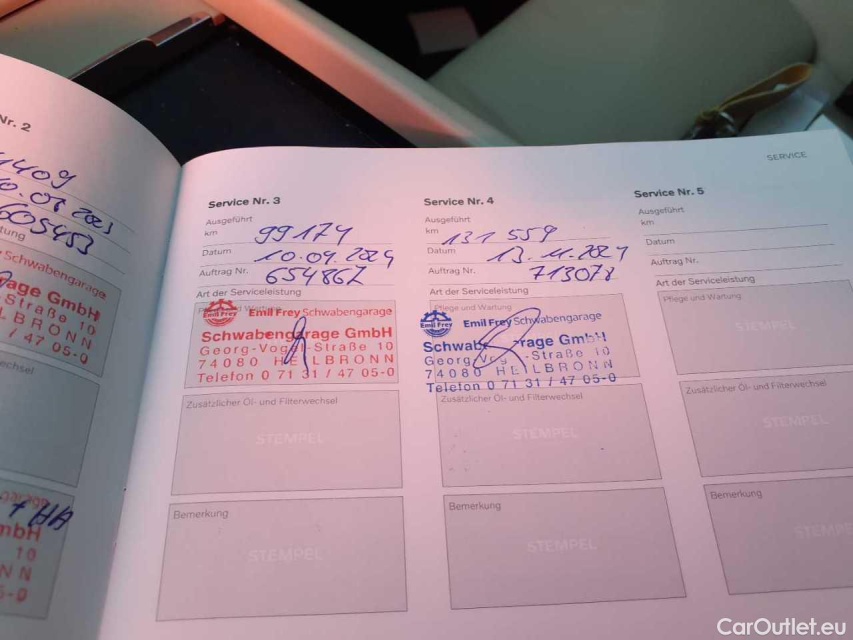 Nr. 2
605453
Schwabengarage
age GmbH
Straße 10
BRONN
47 05-0
SERVICE
Service Nr. 3
Ausgeführt
km 99174
Datum 10.09.2024
Auftrag Nr. 654862
Art der Serviceleistung
Emil Frey Schwabengarage
Schwabengarage GmbH
Georg-Vogel-Straße 10
74080 HEILBRONN
Telefon 0 71 31 / 47 05-0
Zusätzlicher Öl- und Filterwechsel
STEMPEL
Bemerkung
STEMPEL
Service Nr. 4
Ausgeführt
km 131 559
Datum 13.11.2024
Auftrag Nr. 713078
Art der Serviceleistung
Pflege und Wartung
Emil Frey Schwabengarage
Schwabengarage GmbH
Georg-Vogel-Straße 10
74080 HEILBRONN
Telefon 0 71 31 / 47 05-0
Zusätzlicher Öl- und Filterwechsel
STEMPEL
Bemerkung
STEMPEL
Service Nr. 5
Ausgeführt
km
Datum
Auftrag Nr.
Art der Serviceleistung
Pflege und Wartung
STEMPEL
Zusätzlicher Öl- und Filterwechsel
STEMPEL
Bemerkung
STEMPEL
CarOutlet.eu